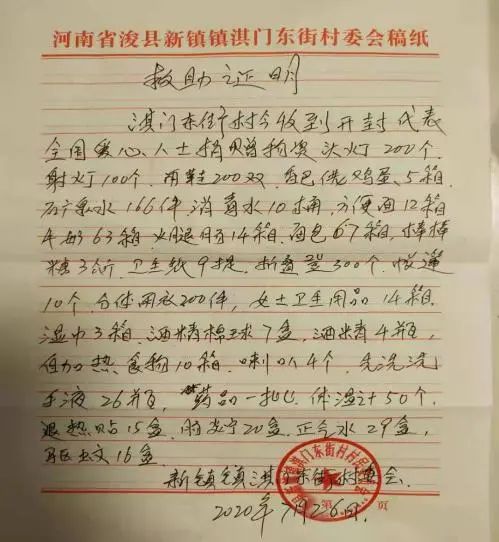 河南省浚县新镇镇淇门东街村委会稿纸
救助证明
淇门东街村今收到开封代表
全国爱心人士捐赠物资 头灯200个
射灯100个 雨鞋200双 自己洗鸡蛋5箱
矿泉水166件 消毒水10桶 方便面12箱
牛奶63箱 火腿肠14箱 面包67箱 棒棒
糖3 卫生纸9提 折叠凳300个
10个 分体雨衣200件 女士卫生用品14箱
湿巾3箱 酒精棉球7盒 酒精4瓶
自加热食物10箱 喇叭4个 免洗洗
手液26瓶 药品一批 体温计50个
退热贴15盒 20盒 正气水29盒
驱蚊16盒
新镇镇淇门东街村委会
2020年7月26日
第 页